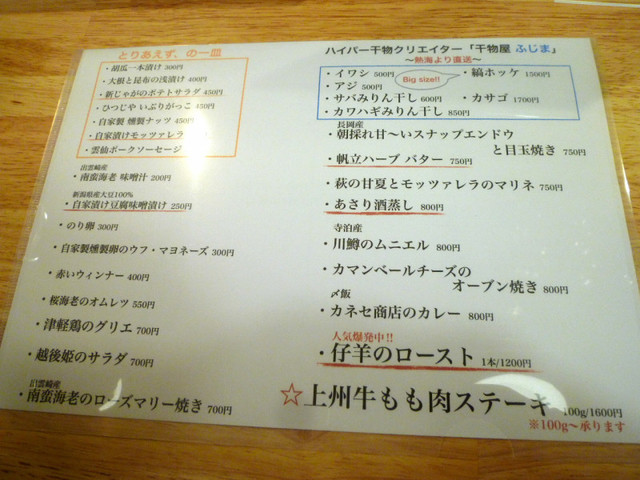 とりあえず、の一皿
・胡瓜一本漬け 300円
・大根と昆布の浅漬け 400円
・新じゃがのポテトサラダ 450円
・ひつじや いぶりがっこ 450円
・自家製 燻製ナッツ 450円
・自家漬けモッツァレラ
・雲仙ポークソーセージ
出雲崎産
・南蛮海老 味噌汁 200円
新潟県産大豆100%
・自家漬け豆腐味噌漬け 250円
・のり卵 300円
・自家製燻製卵のウフ・マヨネーズ 300円
・赤いウィンナー 400円
・桜海老のオムレツ 550円
・津軽鶏のグリエ 700円
・越後姫のサラダ 700円
出雲崎産
・南蛮海老のローズマリー焼き 700円
ハイパー干物クリエイター「干物屋 ふじま」
〜熱海より直送〜
・イワシ 500円
Big size!!
・縞ホッケ 1500円
・アジ 500円
・サバみりん干し 600円
・カサゴ 1700円
・カワハギみりん干し 850円
長岡産
・朝採れ甘〜いスナップエンドウ
と目玉焼き 750円
・帆立ハーブ バター 750円
・萩の甘夏とモッツァレラのマリネ 750円
・あさり酒蒸し 800円
寺泊産
・川鱒のムニエル 800円
・カマンベールチーズの
オーブン焼き 800円
〆飯
・カネセ商店のカレー 800円
人気爆発中!!
・仔羊のロースト 1本/1200円
☆上州牛もも肉ステーキ 100g/1600円
※100g〜承ります